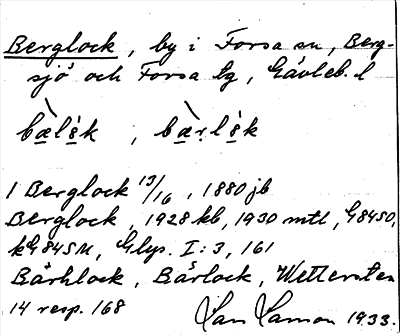 Berglock, by i Forsa sn, Berg-
sjö och Forsa tg, Gävleb. l
bælsk, bærlsk
1 Berglock 13/16, 1880 jb
Berglock, 1928 kb, 1930 mtl, G84SO,
kG84SU, Glys. I:3, 161
Bärhlock, Bärlock, Wettersten
14 resp. 168
1933.